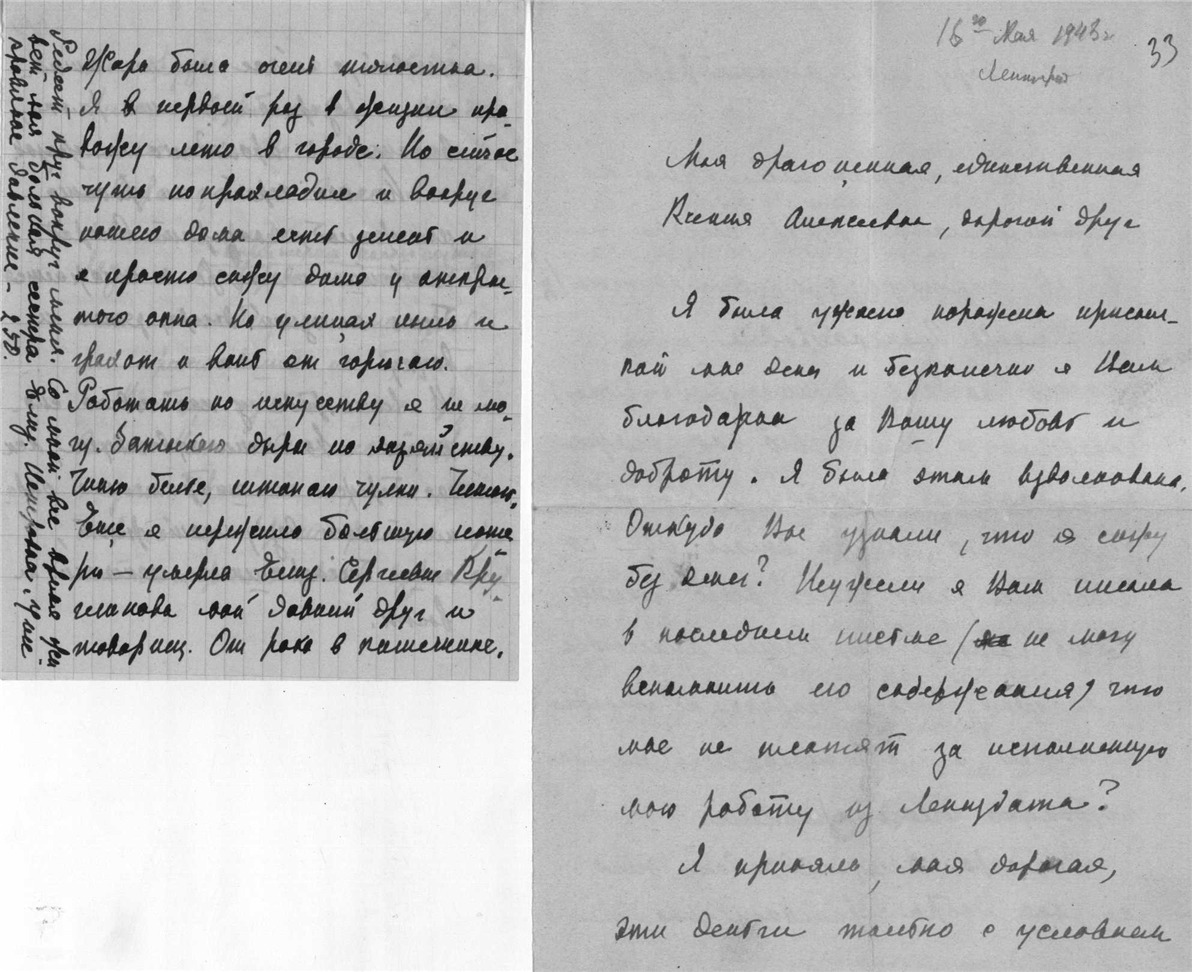 Жара была очень тягостна.
Я в первый раз в жизни про-
вожу лето в городе. Но сейчас
чуть попрохладнее и вокруг
нашего дома есть зелень и
я просто сижу дома у откры-
того окна. На улицах пыль и
грохот и вонь от горючего.
Работать по искусству я не мо-
гу. дыры по хозяйству.
Чиню белье, штопаю чулки. Читаю.
Еще я пережила большую поте-
рю — умерла Елиз. Сергеевна Кру-
гликова мой давний друг и
товарищ. От рака в кишечнике.
Редеет круг вокруг меня. Со мной все время жи-
вет моя больная сестра. Ей
кровяное давление – 250.
16го Мая 1943 г.
Ленинград
33
Моя драгоценная, единственная
Ксения Алексеевна, дорогой друг
Я была ужасно поражена присыл-
кой мне денег и безконечно я Вам
благодарна за Вашу любовь и
доброту. Я была этим взволнована.
Откуда Вы узнали, что я сижу
без денег? Неужели я Вам писала
в последнем письме (не могу
вспомнить его содержания) что
мне не платят за исполненную
мою работу из Лениздата?
Я приняла, моя дорогая,
эти деньги только с условием